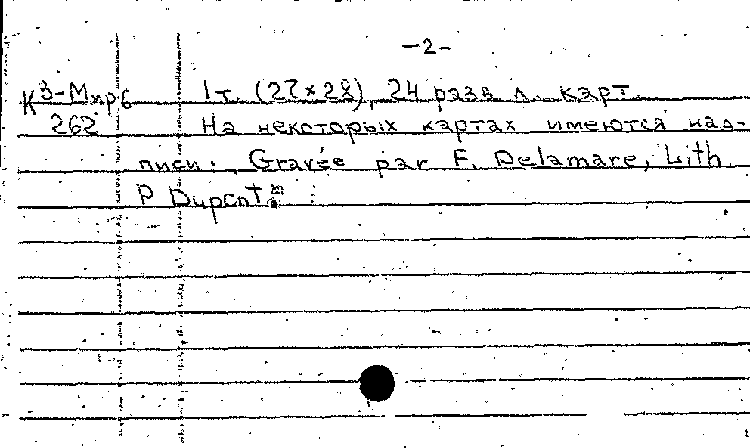 —2—
К 3-Мир6 1 т. (27×28), 24 разв. л. карт.
262 На некоторых картах имеются над-
писи: Gravée par F. Delamare, Lith.
P Dupont